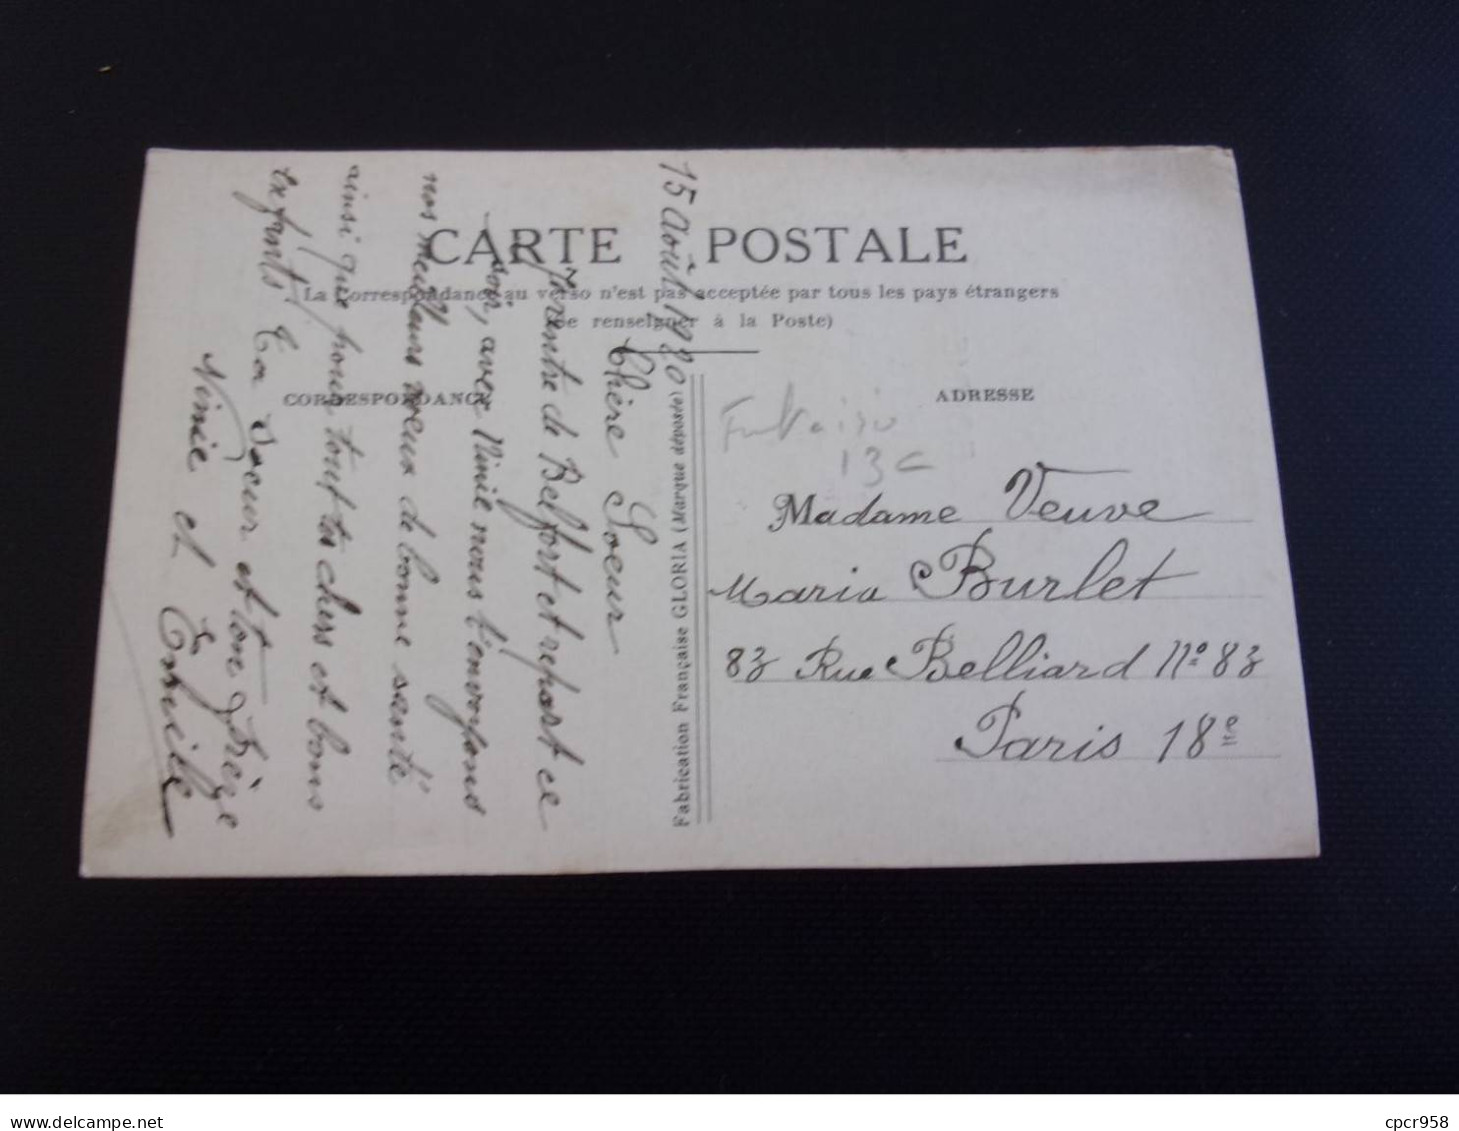 CARTE POSTALE
La Correspondance au verso n'est pas acceptée par tous les pays étrangers
(Se renseigner à la Poste)
CORRESPONDANCE
ADRESSE
Fabrication Française GLORIA (Marque déposée)
15 Août 1920
Chère Soeur
Je rentre de Belfort et repart ce
soir, avec Ninie nous t'envoyons
nos meilleurs voeux de bonne santé
ainsi que pour tout tes chers et bons
enfants Ta soeur et ton frère
Ninie et Emile
Fantaisie
13 c
Madame Veuve
Maria Burlet
83 Rue Belliard n° 83
Paris 18e
delcampe.net
cpcr958